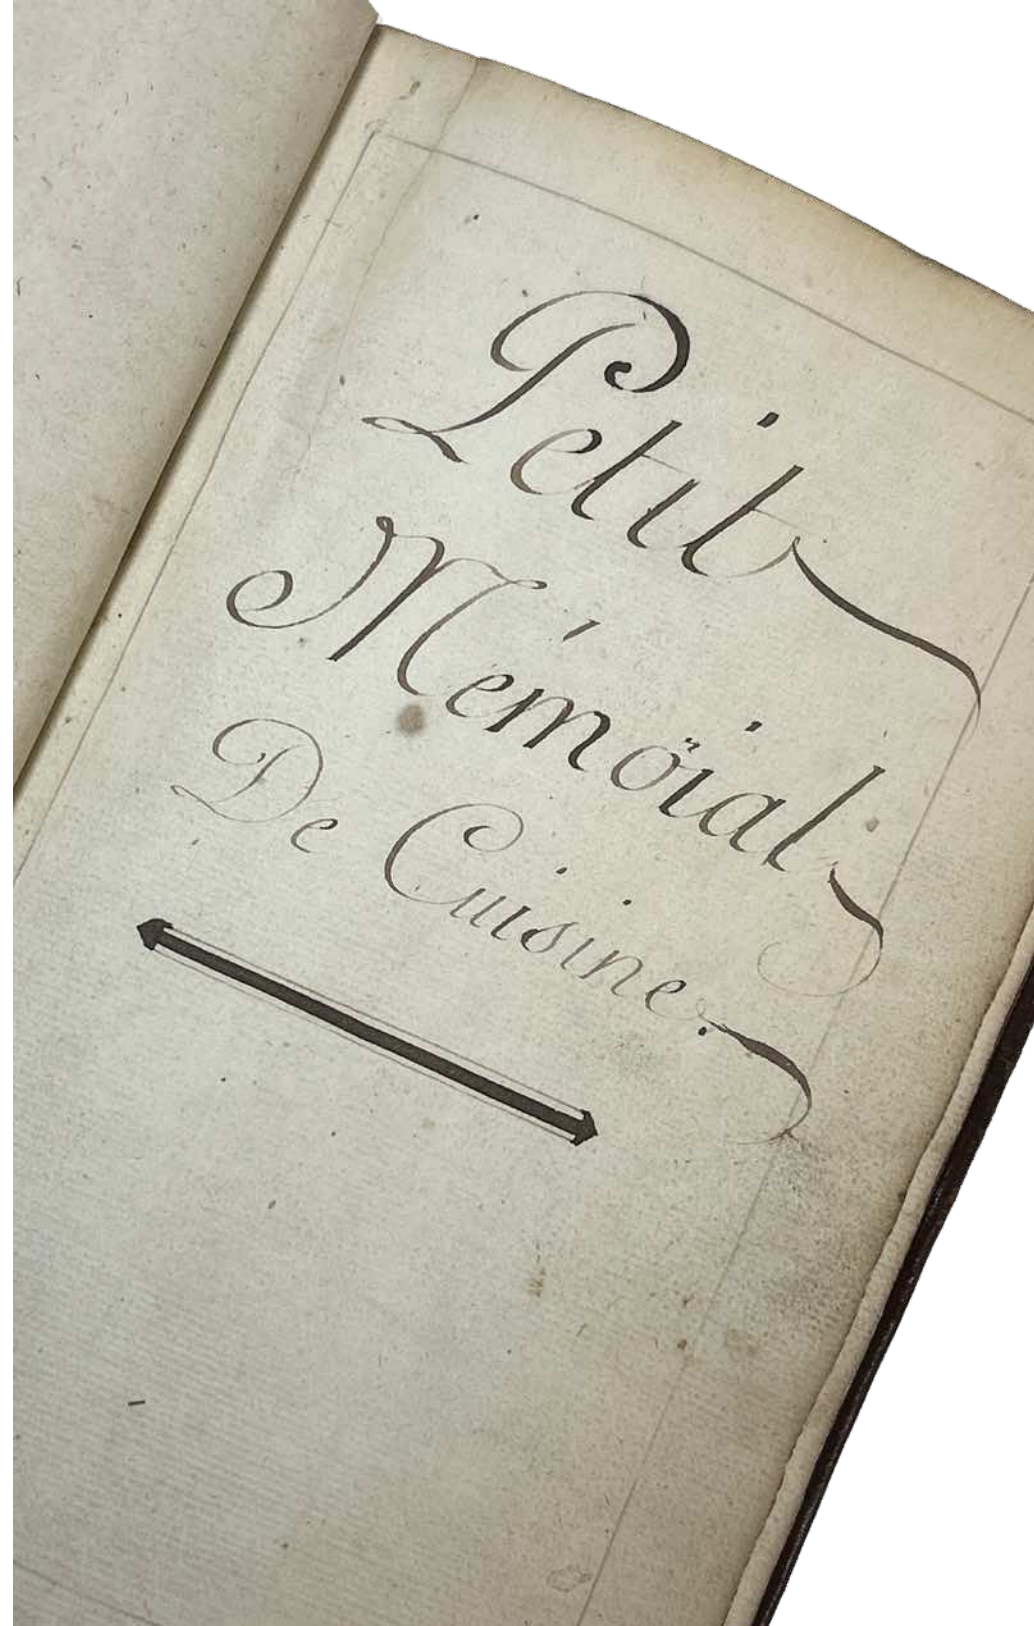 Petit
Mémöial
De Cuisine.